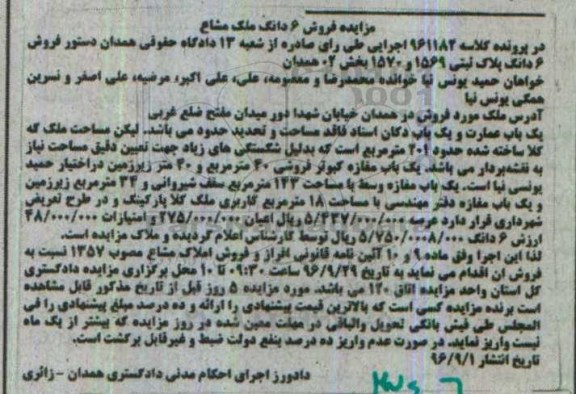 مزایده فروش ۶ دانگ ملک مشاع
در پرونده کلاسه ۹۶۱۱۸۲ اجرایی طی رای صادره از شعبه ۱۳ دادگاه حقوقی همدان دستور فروش
۶ دانگ پلاک ثبتی ۱۵۶۹ و ۱۵۷۰ بخش ۰۲ همدان
خواهان حمید یونس نیا خوانده محمدرضا و معصومه، علی، علی اکبر، مرضیه، علی اصغر و نسرین
همگی یونس نیا
آدرس ملک مورد فروش در همدان خیابان شهدا دور میدان مفتح ضلع غربی
یک باب عمارت و یک باب دکان اسناد فاقد مساحت و تحدید حدود می باشد. لیکن مساحت ملک که
کلا ساخته شده حدود ۲۰۱ مترمربع است که بدلیل شکستگی های زیاد جهت تعیین دقیق مساحت نیاز
به نقشه‌بردار می باشد. یک باب مغازه کبوتر فروشی ۴۰ مترمربع و ۴۰ متر زیرزمین دراختیار حمید
یونسی نیا است. یک باب مغازه وسط با مساحت ۱۴۳ مترمربع سقف شیروانی و ۳۴ مترمربع زیرزمین
و یک باب مغازه دفتر مهندسی با مساحت ۱۸ مترمربع کاربری ملک کلا پارکینگ و در طرح تعریض
شهرداری قرار دارد عرصه ۵/۴۲۷/۰۰۰/۰۰۰ ریال اعیان ۲۷۵/۰۰۰/۰۰۰ و امتیازات ۴۸/۰۰۰/۰۰۰
ارزش ۶ دانگ ۵/۷۵۰/۰۰۰۸/۰۰۰ ریال توسط کارشناس اعلام گردیده و ملاک مزایده است.
لذا این اجرا وفق ماده ۹ و ۱۰ آئین نامه قانونی افراز و فروش املاک مشاع مصوب ۱۳۵۷ نسبت به
فروش آن اقدام می نماید به تاریخ ۹۶/۹/۲۹ ساعت ۰۹:۳۰ تا ۱۰ محل برگزاری مزایده دادگستری
کل استان واحد مزایده اتاق ۱۲۰ می باشد. مورد مزایده ۵ روز قبل از تاریخ مذکور قابل مشاهده
است برنده مزایده کسی است که بالاترین قیمت پیشنهادی را ارائه و ده درصد مبلغ پیشنهادی را فی
المجلس طی فیش بانکی تحویل والباقی در مهلت معین شده در روز مزایده که بیشتر از یک ماه
نیست واریز نماید. در صورت عدم واریز ده درصد بنفع دولت ضبط و غیرقابل برگشت است.
تاریخ انتشار ۹۶/۹/۱
دادورز اجرای احکام مدنی دادگستری همدان - زائری